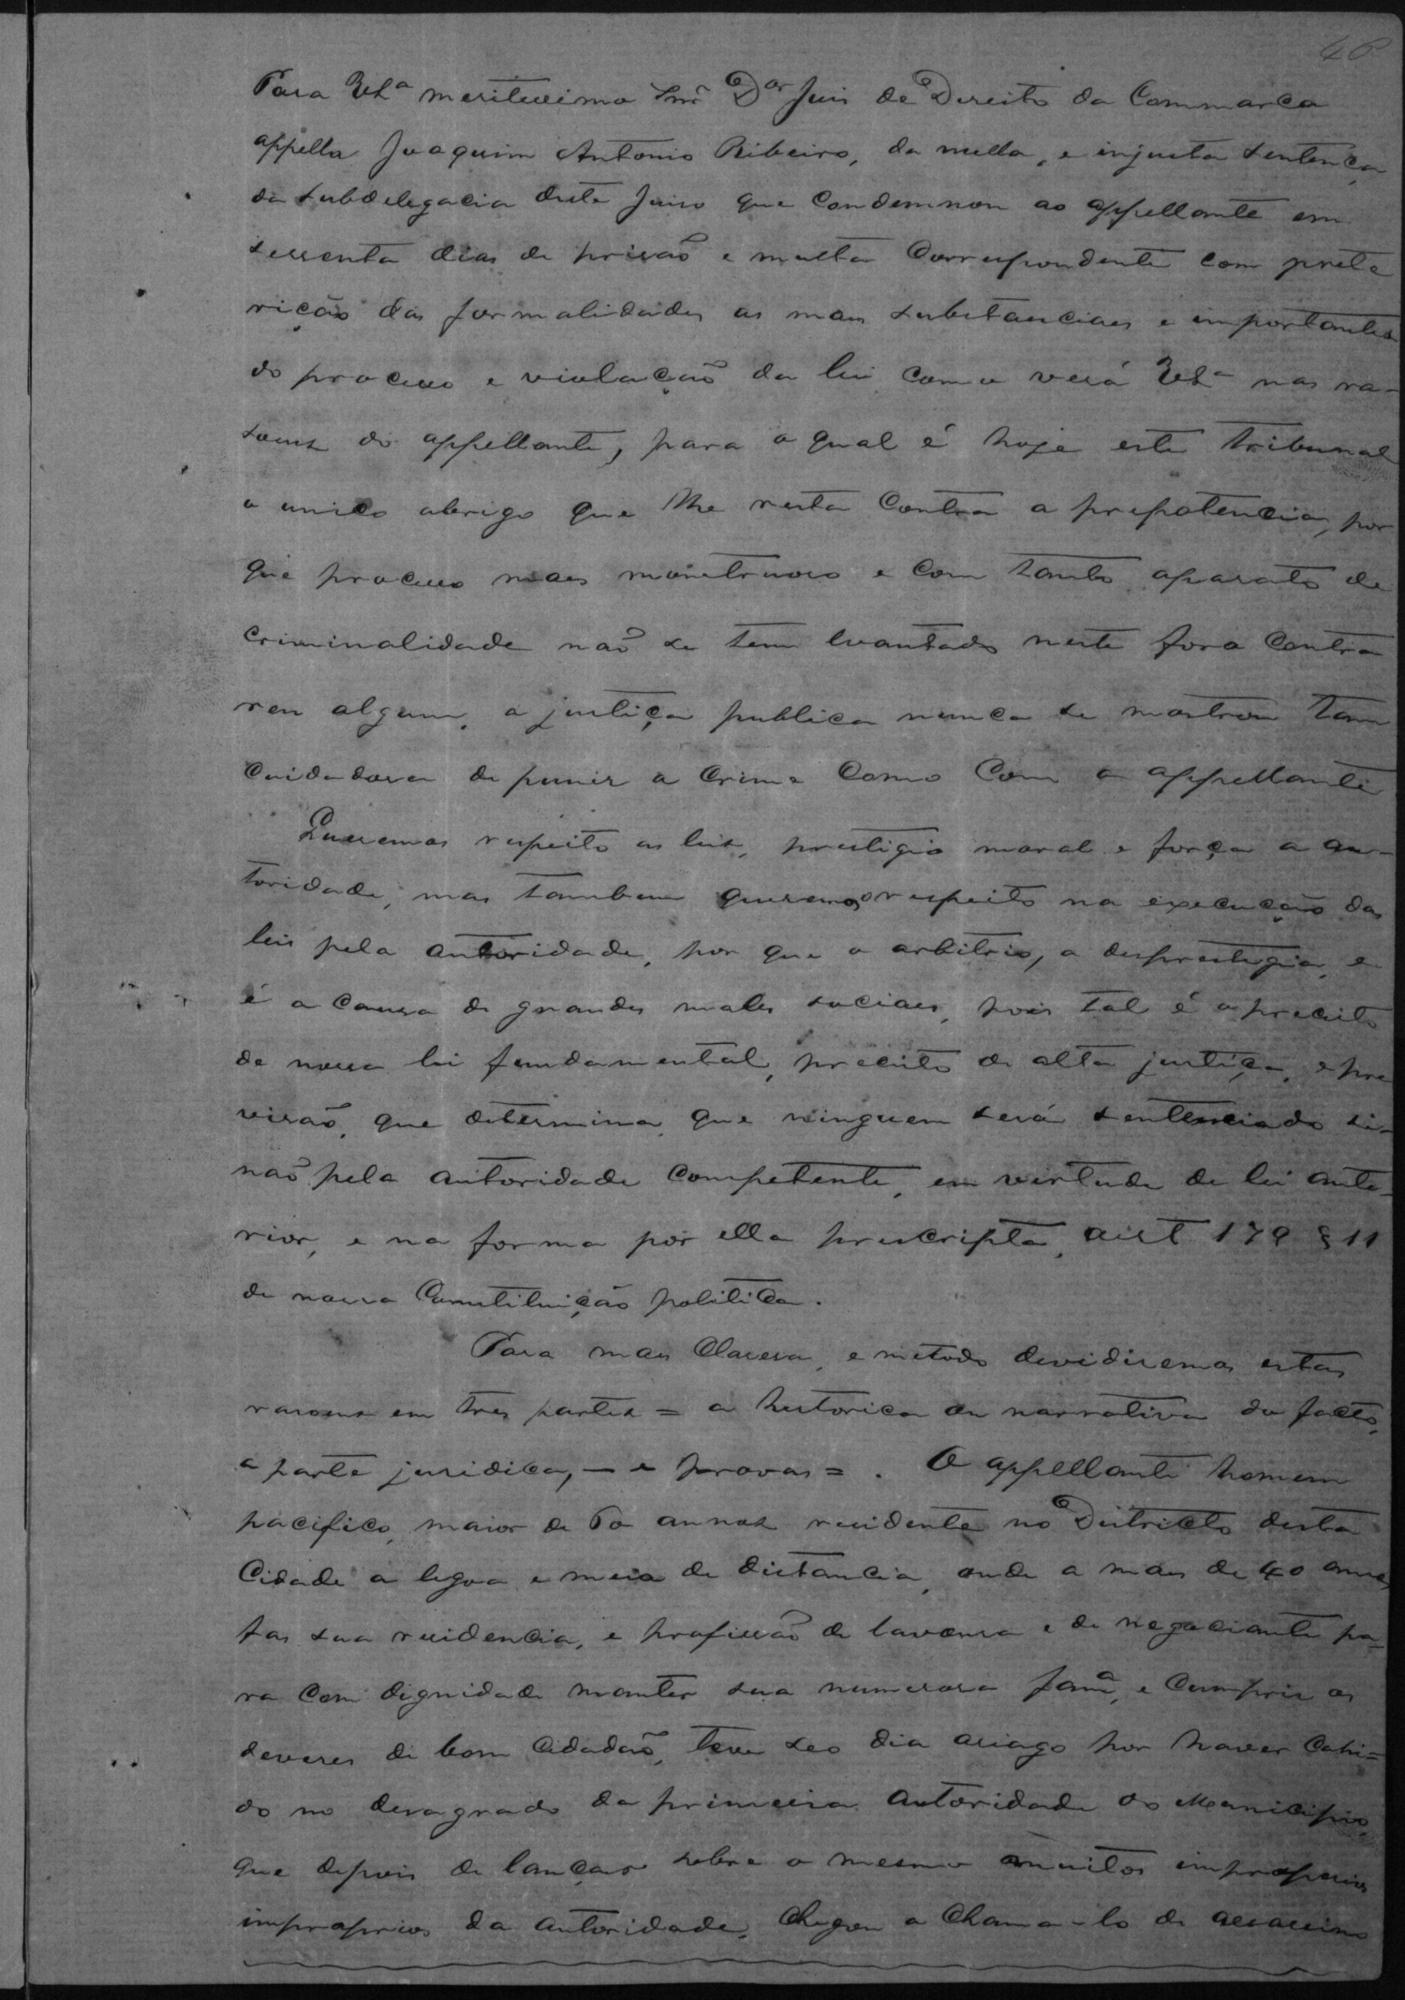 46
Para VSª meritissimo Snr Dor Juis de Direito da Commarca
appella Joaquim Antonio Ribeiro, da nulla, e injusta sentença
da subdelegacia deste Juiso que condemnou ao appellante em
sessenta dias de prisaõ e multa correspondente com prete
rição das formalidades as mais substanciaes e importantes
do processo e violaçaõ da lei como verá VSª nas ra-
soens do appellante, para o qual é hoje este tribunal
o unico abrigo que lhe resta contra a prepotencia, por
que processo mais monstruoso e com tanto aparato de
criminalidade naõ se tem levantado neste foro contra
reu algum, a justiça publica nunca se mostrou tam
cuidadosa de punir a crime como com o appellante
Queremos respeito as leis, prestigio moral e força a au-
toridade, mas tambem queremos respeito na execução das
leis pela autoridade, por que o arbitrio, a desprestigia, e
é a causa de grandes males sociaes, pois tal é o preceito
de nossa lei fundamental, preceito de alta justiça, e pre
visaõ, que determina que ninguem será sentenciado si-
naõ pela autoridade competente, em virtude de lei ante-
rior, e na forma por ella prescripta, art 179 § 11
de nossa Constituição politica.
Para mais claresa, e metodo devidiremos estas
rasoens em tres partes = a historica ou narrativa do facto,
a parte juridica, — e provas = . O appellante homem
pacifico, maior de 60 annos residente no Districto desta
Cidade a legoa e meia de distancia, onde a mais de 40 annos
fas sua residencia, e profissaõ de lavoura e de negociante pa-
ra com dignidade manter sua numerosa famª, e cumprir os
deveres de bom Cidadaõ, teve seo dia asiago por haver cahi=
do no desagrado da primeira autoridade do Municipio,
que depois de lançar sobre o mesmo muitos improperios
improprios da autoridade, chegou a chama-lo de assassino